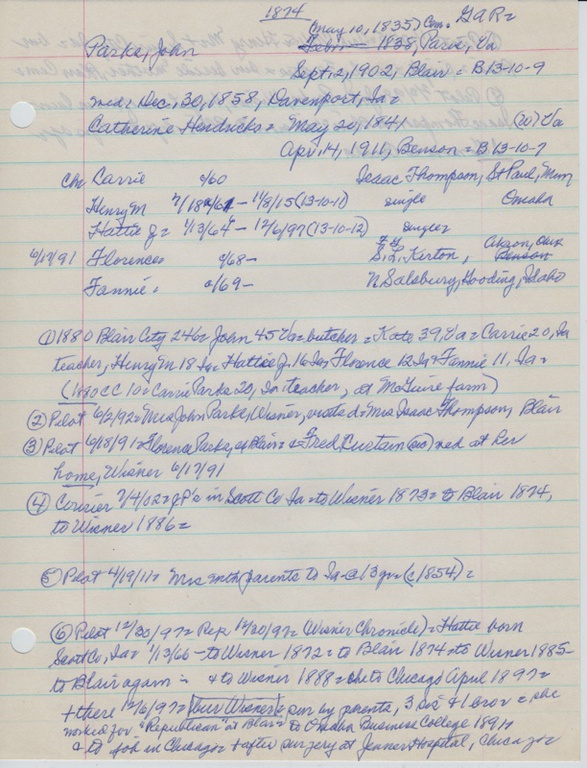 1874
(May 10, 1835) Com. GAR=
Parke, John 1838, Paris, Va
Sept, 2, 1902, Blair = B13-10-9
md: Dec, 30, 1858, Davenport, Ia=
Catherine Hendricks = May 20, 1841 (20) Va
Apr, 14, 1911, Benson = B13-10-7
Ch Carrie c/60 Isaac Thompson, St Paul, Minn
Henry M 7/18 - 1/8/15 (13-10-11) single Omaha
Hattie J = 1/13/64 - 12/6/97 (13-10-12) single=
6/17/91 Florence= c/68- S, L, Kerton, Akron, Benson
Fannie = c/69- N Salsbury, Gooding, Idaho
① 1880 Blair City 246= John 45 Va= butcher = Kate 39, Va = Carrie 20, Ia
teacher, Henry M 18 Ia= Hattie J. 16 Ia= Florence 12 Ia= Fannie 11, Ia=
(1880 CC 10= Carrie Parke 20, Ia teacher, at McGuire farm)
② Pilot 6/2/92= Mrs John Parke, Wisner, visits d= Mrs Isaac Thompson, Blair
③ Pilot 6/18/91= Florence Parke, of Blair= & Fred Curtain (so) md at her
home, Wisner 6/17/91
④ Courier 7/4/02= J.P.'s in Scott Co Ia= to Wisner 1873= to Blair 1874,
to Wisner 1886=
⑤ Pilot 4/19/11= Mrs with parents to Ia @ 13 yr= (c1854)=
⑥ Pilot 12/30/97= Rep 12/20/97= (Wisner Chronicle)= Hattie born
Scott Co, Ia= 1/13/66 - to Wisner 1872= to Blair 1874= to Wisner 1885-
to Blair again = & to Wisner 1888= she to Chicago April 1897=
+ there 12/6/97= bur Wisner= sur by parents, 3 sis & 1 bro = she
worked for "Republican" at Blair= to Omaha Business College 1891
& to job in Chicago= + after surgery at Jenner Hospital, Chicago=